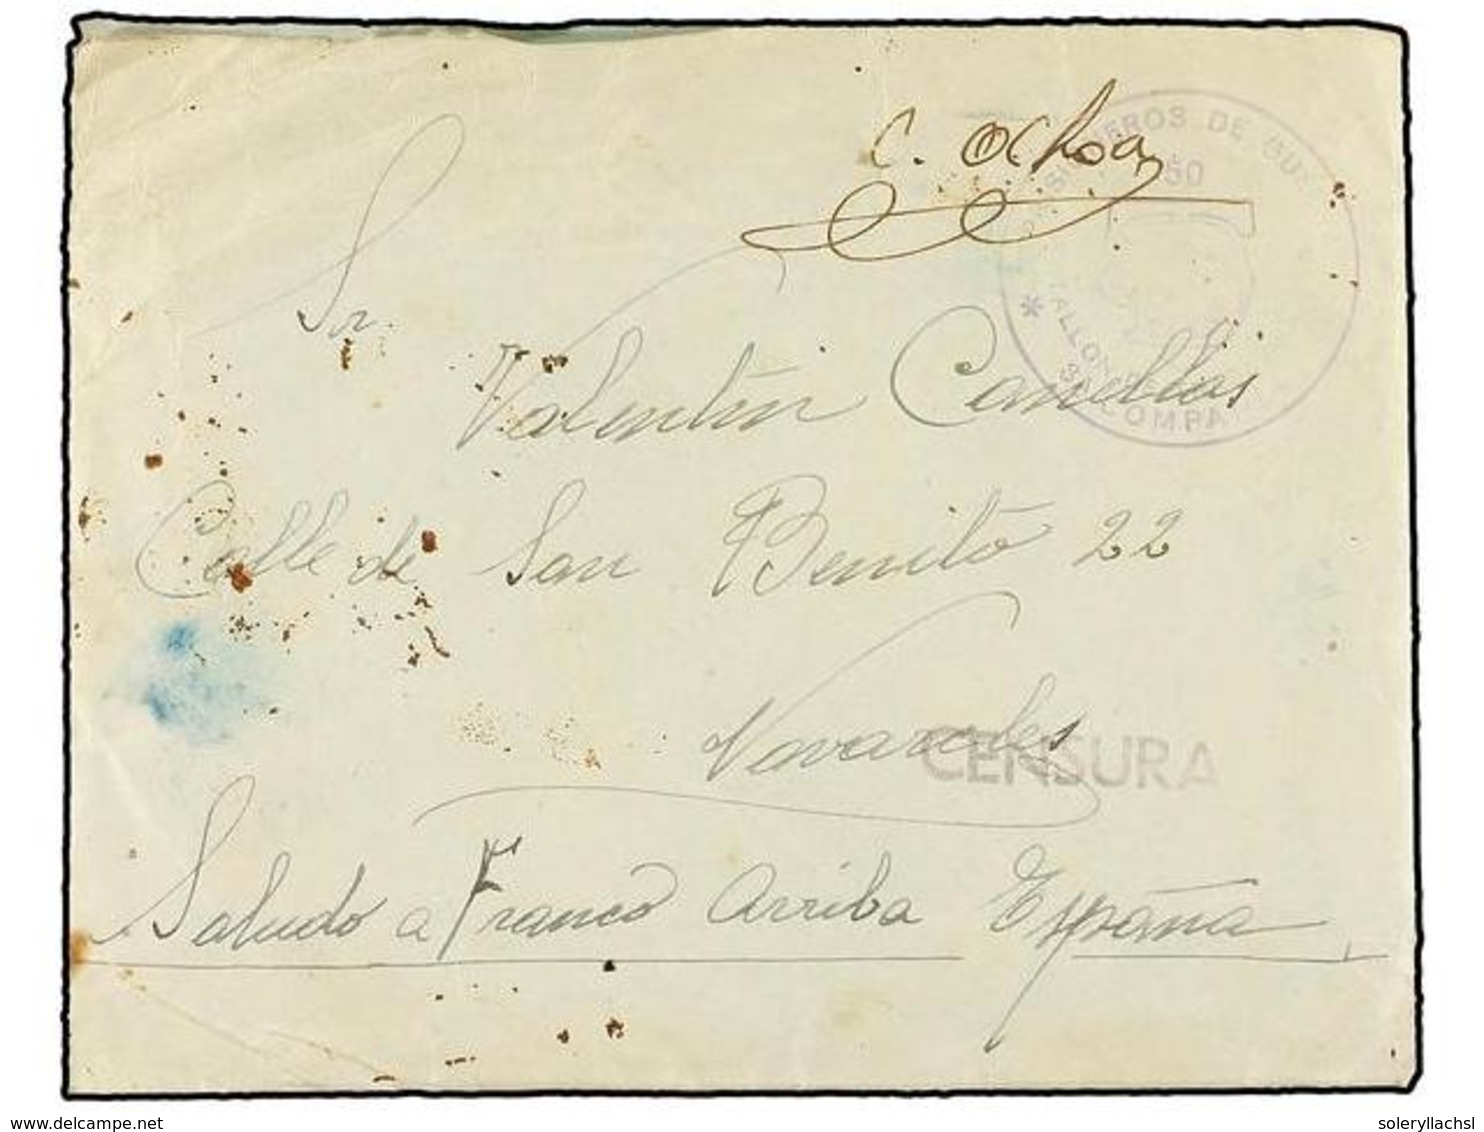 C. Ochoa
50
Sr.
Valentin Canellas
* COMPA
Calle de San Benito 22
Navarcles
CENSURA
Saludo a Franco Arriba España
www.delcampe.net
soleryllachsl